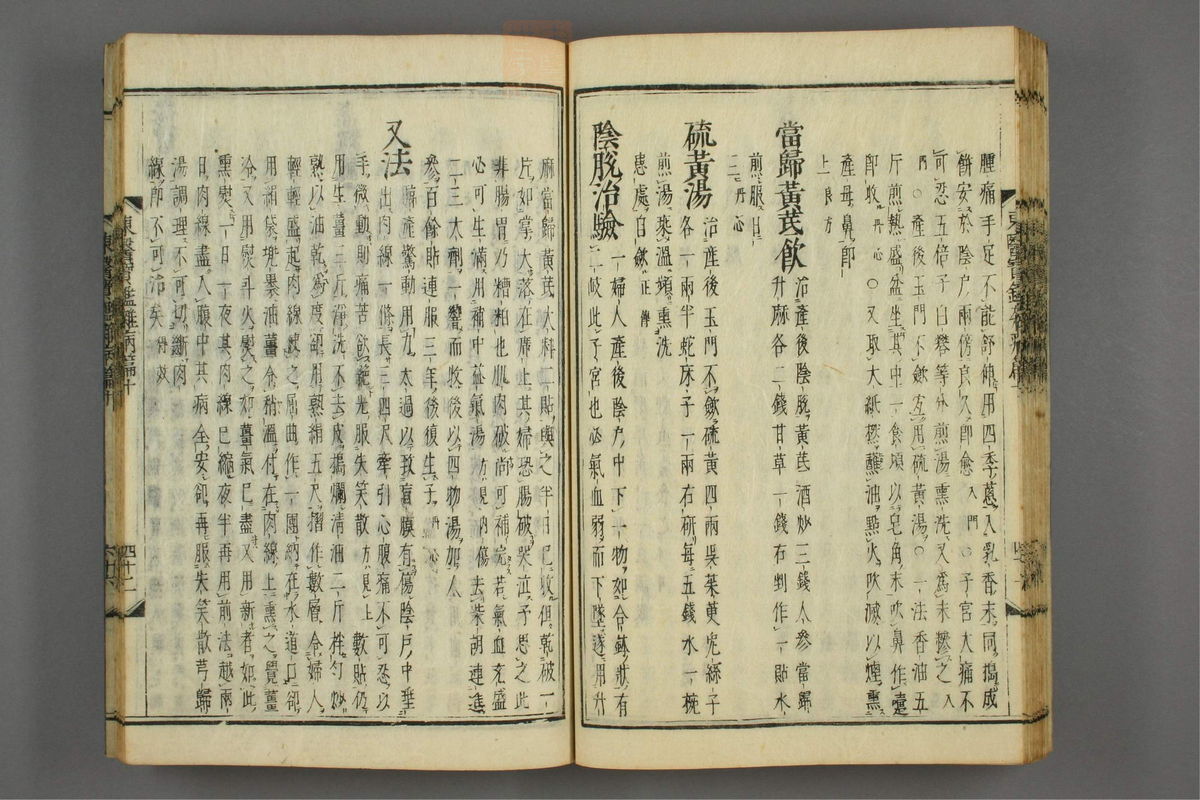 腫痛手足不能舒伸用四季蔥入乳香末同搗成
餅安於陰戶兩傍良久即愈入門○子宮大痛不
可忍五倍子白礬等分煎湯熏洗又爲末摻之入
門○產後玉門不斂宜用硫黃湯○一法香油五
斤煎熱盛盆坐其中一食頃以皂角末吹鼻作嚔
即收丹心○又取大紙撚蘸油點火吹滅以煙熏
產母鼻即
上良方
當歸黃芪飮治產後陰脫黃芪酒炒三錢人參當歸
升麻各二錢甘草一錢右剉作一貼水
煎服日
三丹心
硫黃湯治產後玉門不斂硫黃四兩吳茱萸兎絲子
各一兩半蛇床子一兩右硏每五錢水一椀
煎湯乘溫頻熏洗
患處自斂正傳
陰脫治驗一婦人產後陰戶中下一物如合鉢狀有
二岐此子宮也必氣血弱而下墜遂用升
麻當歸黃芪大料二貼與之半日已收但乾破一
片如掌大落在席上其婦恐腸破哭泣予思之此
非腸胃乃糟粕也肌肉破尙可補完若氣血充盛
必可生滿用補中益氣湯方見內傷去柴胡連進
二三大劑一響而收後以四物湯加人
參百餘貼連服三年後復生子丹心
又法臨產驚動用力太過以致肓膜有傷陰戶中垂
出肉線一條長三四尺牽引心腹痛不可忍以
手微動則痛苦欲絕先服失笑散方見上數貼仍
用生薑三斤淨洗不去皮搗爛清油二斤拌勻炒
熟以油乾爲度却用熟絹五尺摺作數層令婦人
輕輕盛起肉線使之屈曲作一團納在水道口却
用絹袋兜裹油薑令稍溫付在肉線上熏之覺薑
冷又用熨斗火熨之如薑氣已盡又用新者如此
熏熨一日一夜其肉線已縮夜半再用前法越兩
日肉線盡入腹中其病全安却再服失笑散芎歸
湯調理不可切斷肉
線即不可治矣得效
東醫寶鑑雜病篇十
四十二